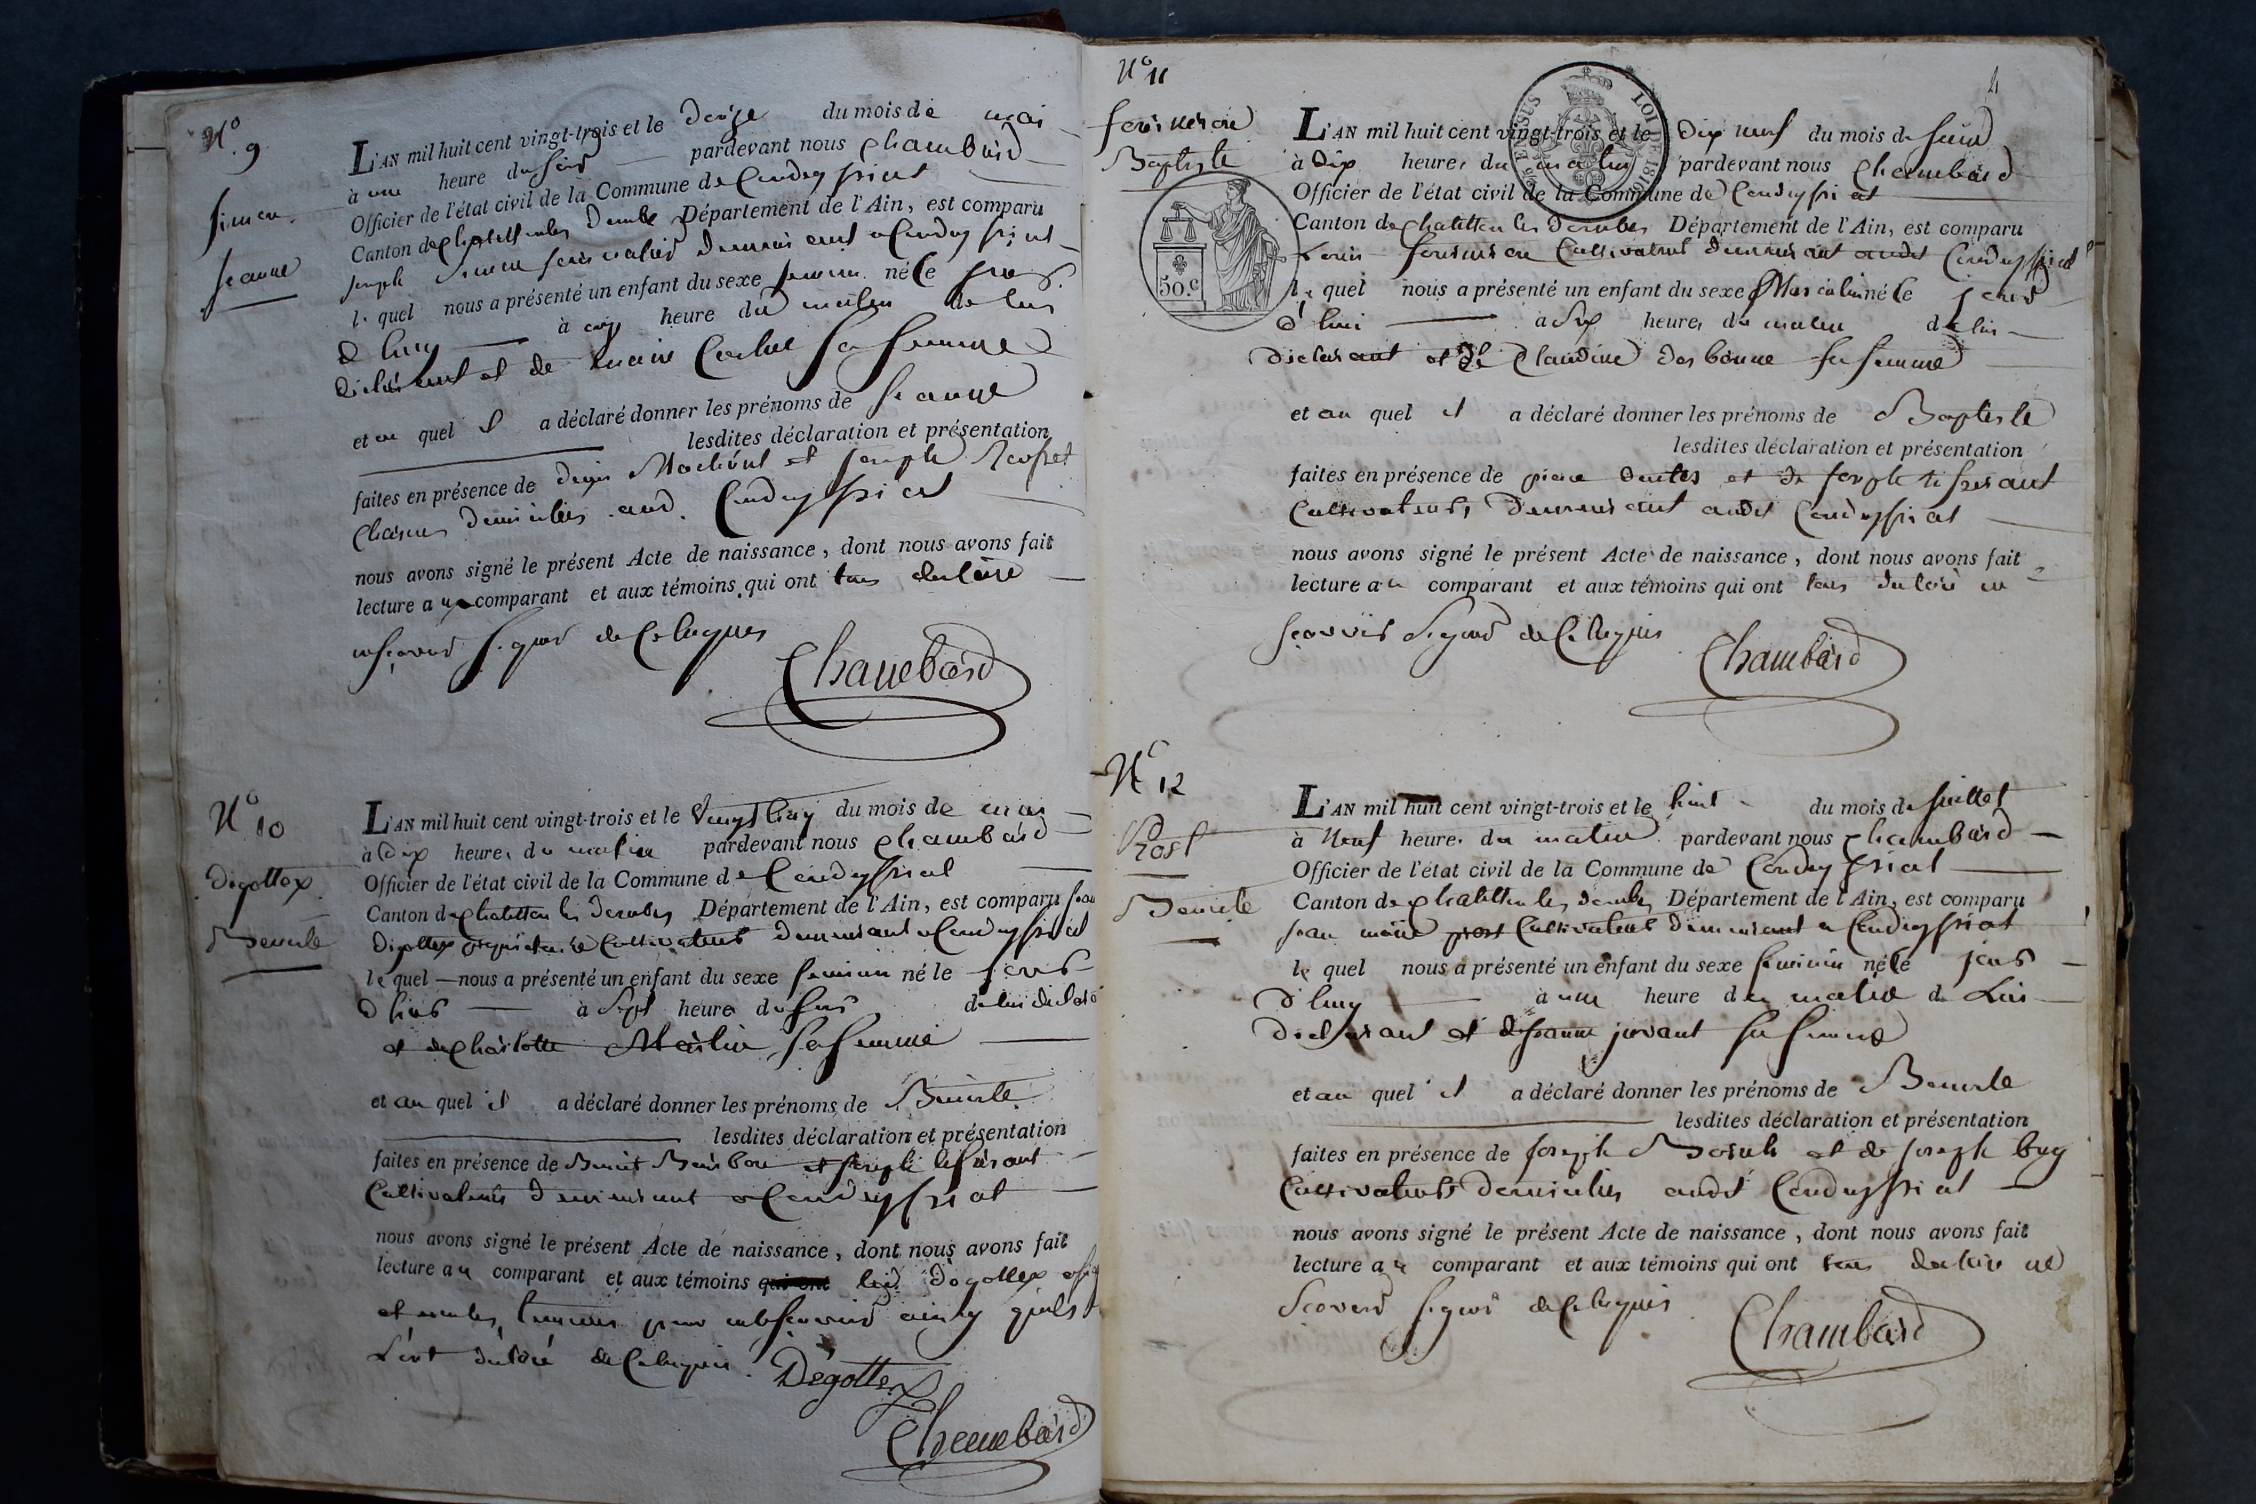 N.o 9
Simon
Jeanne
L'AN mil huit cent vingt-trois et le douze du mois de mai
à une heure du soir pardevant nous Chambard
Officier de l'état civil de la Commune de Condeyssiat
Canton de chatillon les Dombes Département de l'Ain, est comparu
joseph Simon demeurant a Condeyssiat
le quel nous a présenté un enfant du sexe feminin né le jour
d'huy à cinq heure du matin de lui
déclarant et de sa femme
et au quel il a déclaré donner les prénoms de Jeanne
lesdites déclaration et présentation
faites en présence de denis et joseph
domiciliés aud. Condeyssiat
nous avons signé le présent Acte de naissance, dont nous avons fait
lecture au comparant et aux témoins qui ont tous declaré
ne sçavoir signer de ce requis
Chambard
N.o 10
Degottex
Benoite
L'AN mil huit cent vingt-trois et le vingt cinq du mois de mai
à dix heures du matin pardevant nous Chambard
Officier de l'état civil de la Commune de Condeyssiat
Canton de chatillon les Dombes Département de l'Ain, est comparu jean
degottex propriétaire Cultivateur demeurant a Condeyssiat
le quel nous a présenté un enfant du sexe feminin né le
à sept heure du de lui déclarant
et de charlotte Martin sa femme
et au quel il a déclaré donner les prénoms de Benoite
lesdites déclaration et présentation
faites en présence de Benoit et joseph tisserant
Cultivateurs demeurant a Condeyssiat
nous avons signé le présent Acte de naissance, dont nous avons fait
lecture au comparant et aux témoins qui ont led. degottex
et non les temoins pour ne sçavoir ainsy qu'ils
l'ont declaré de ce requis
Degottex
Chambard
N.o 11
4
Baptiste
50.c
LOI DE 1816
L'AN mil huit cent vingt-trois et le dix neuf du mois de juin
à dix heures du matin pardevant nous Chambard
Officier de l'état civil de la Commune de Condeyssiat
Canton de chatillon les Dombes Département de l'Ain, est comparu
Louis Cultivateur demeurant audit Condeyssiat
le quel nous a présenté un enfant du sexe Masculin né le jour
d'hui à six heures du matin de lui
déclarant et de Claudine desbonne sa femme
et au quel il a déclaré donner les prénoms de Baptiste
lesdites déclaration et présentation
faites en présence de pierre et de joseph tisserant
Cultivateurs demeurant audit Condeyssiat
nous avons signé le présent Acte de naissance, dont nous avons fait
lecture au comparant et aux témoins qui ont tous declaré ne
sçavoir signer de ce requis
Chambard
N.o 12
Prost
Benoite
L'AN mil huit cent vingt-trois et le huit du mois de juillet
à Neuf heures du matin pardevant nous Chambard
Officier de l'état civil de la Commune de Condeyssiat
Canton de chatillon les Dombes Département de l'Ain, est comparu
jean marie prost Cultivateur demeurant a Condeyssiat
le quel nous a présenté un enfant du sexe feminin né le jour
d'huy à une heure du matin de Lui
déclarant et de jeanne juvant sa femme
et au quel il a déclaré donner les prénoms de Benoite
lesdites déclaration et présentation
faites en présence de joseph et de joseph
Cultivateurs domiciliés audit Condeyssiat
nous avons signé le présent Acte de naissance, dont nous avons fait
lecture au comparant et aux témoins qui ont tous declaré ne
sçavoir signer de ce requis
Chambard